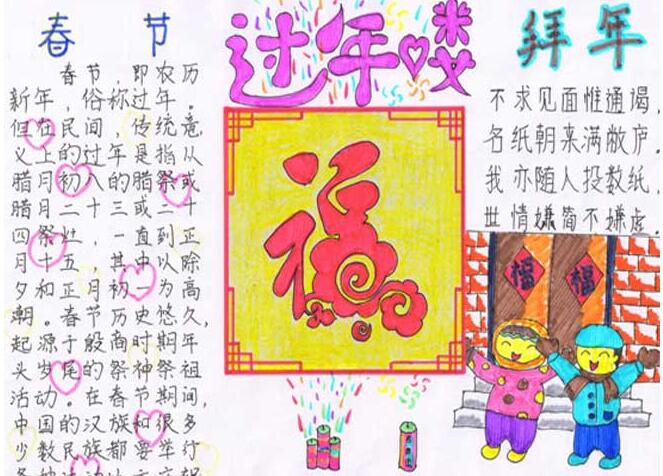 春节
春节，即农历
新年，俗称过年。
但在民间，传统意
义上的过年是指从
腊月初八的腊祭或
腊月二十三或二十
四祭灶，一直到正
月十五，其中以除
夕和正月初一为高
潮。春节历史悠久，
起源于殷商时期年
头岁尾的祭神祭祖
活动。在春节期间，
中国的汉族和很多
少数民族都要举行
过年喽
福
拜年
不求见面惟通谒，
名纸朝来满敝庐。
我亦随人投数纸，
世情嫌简不嫌虚。
福
福